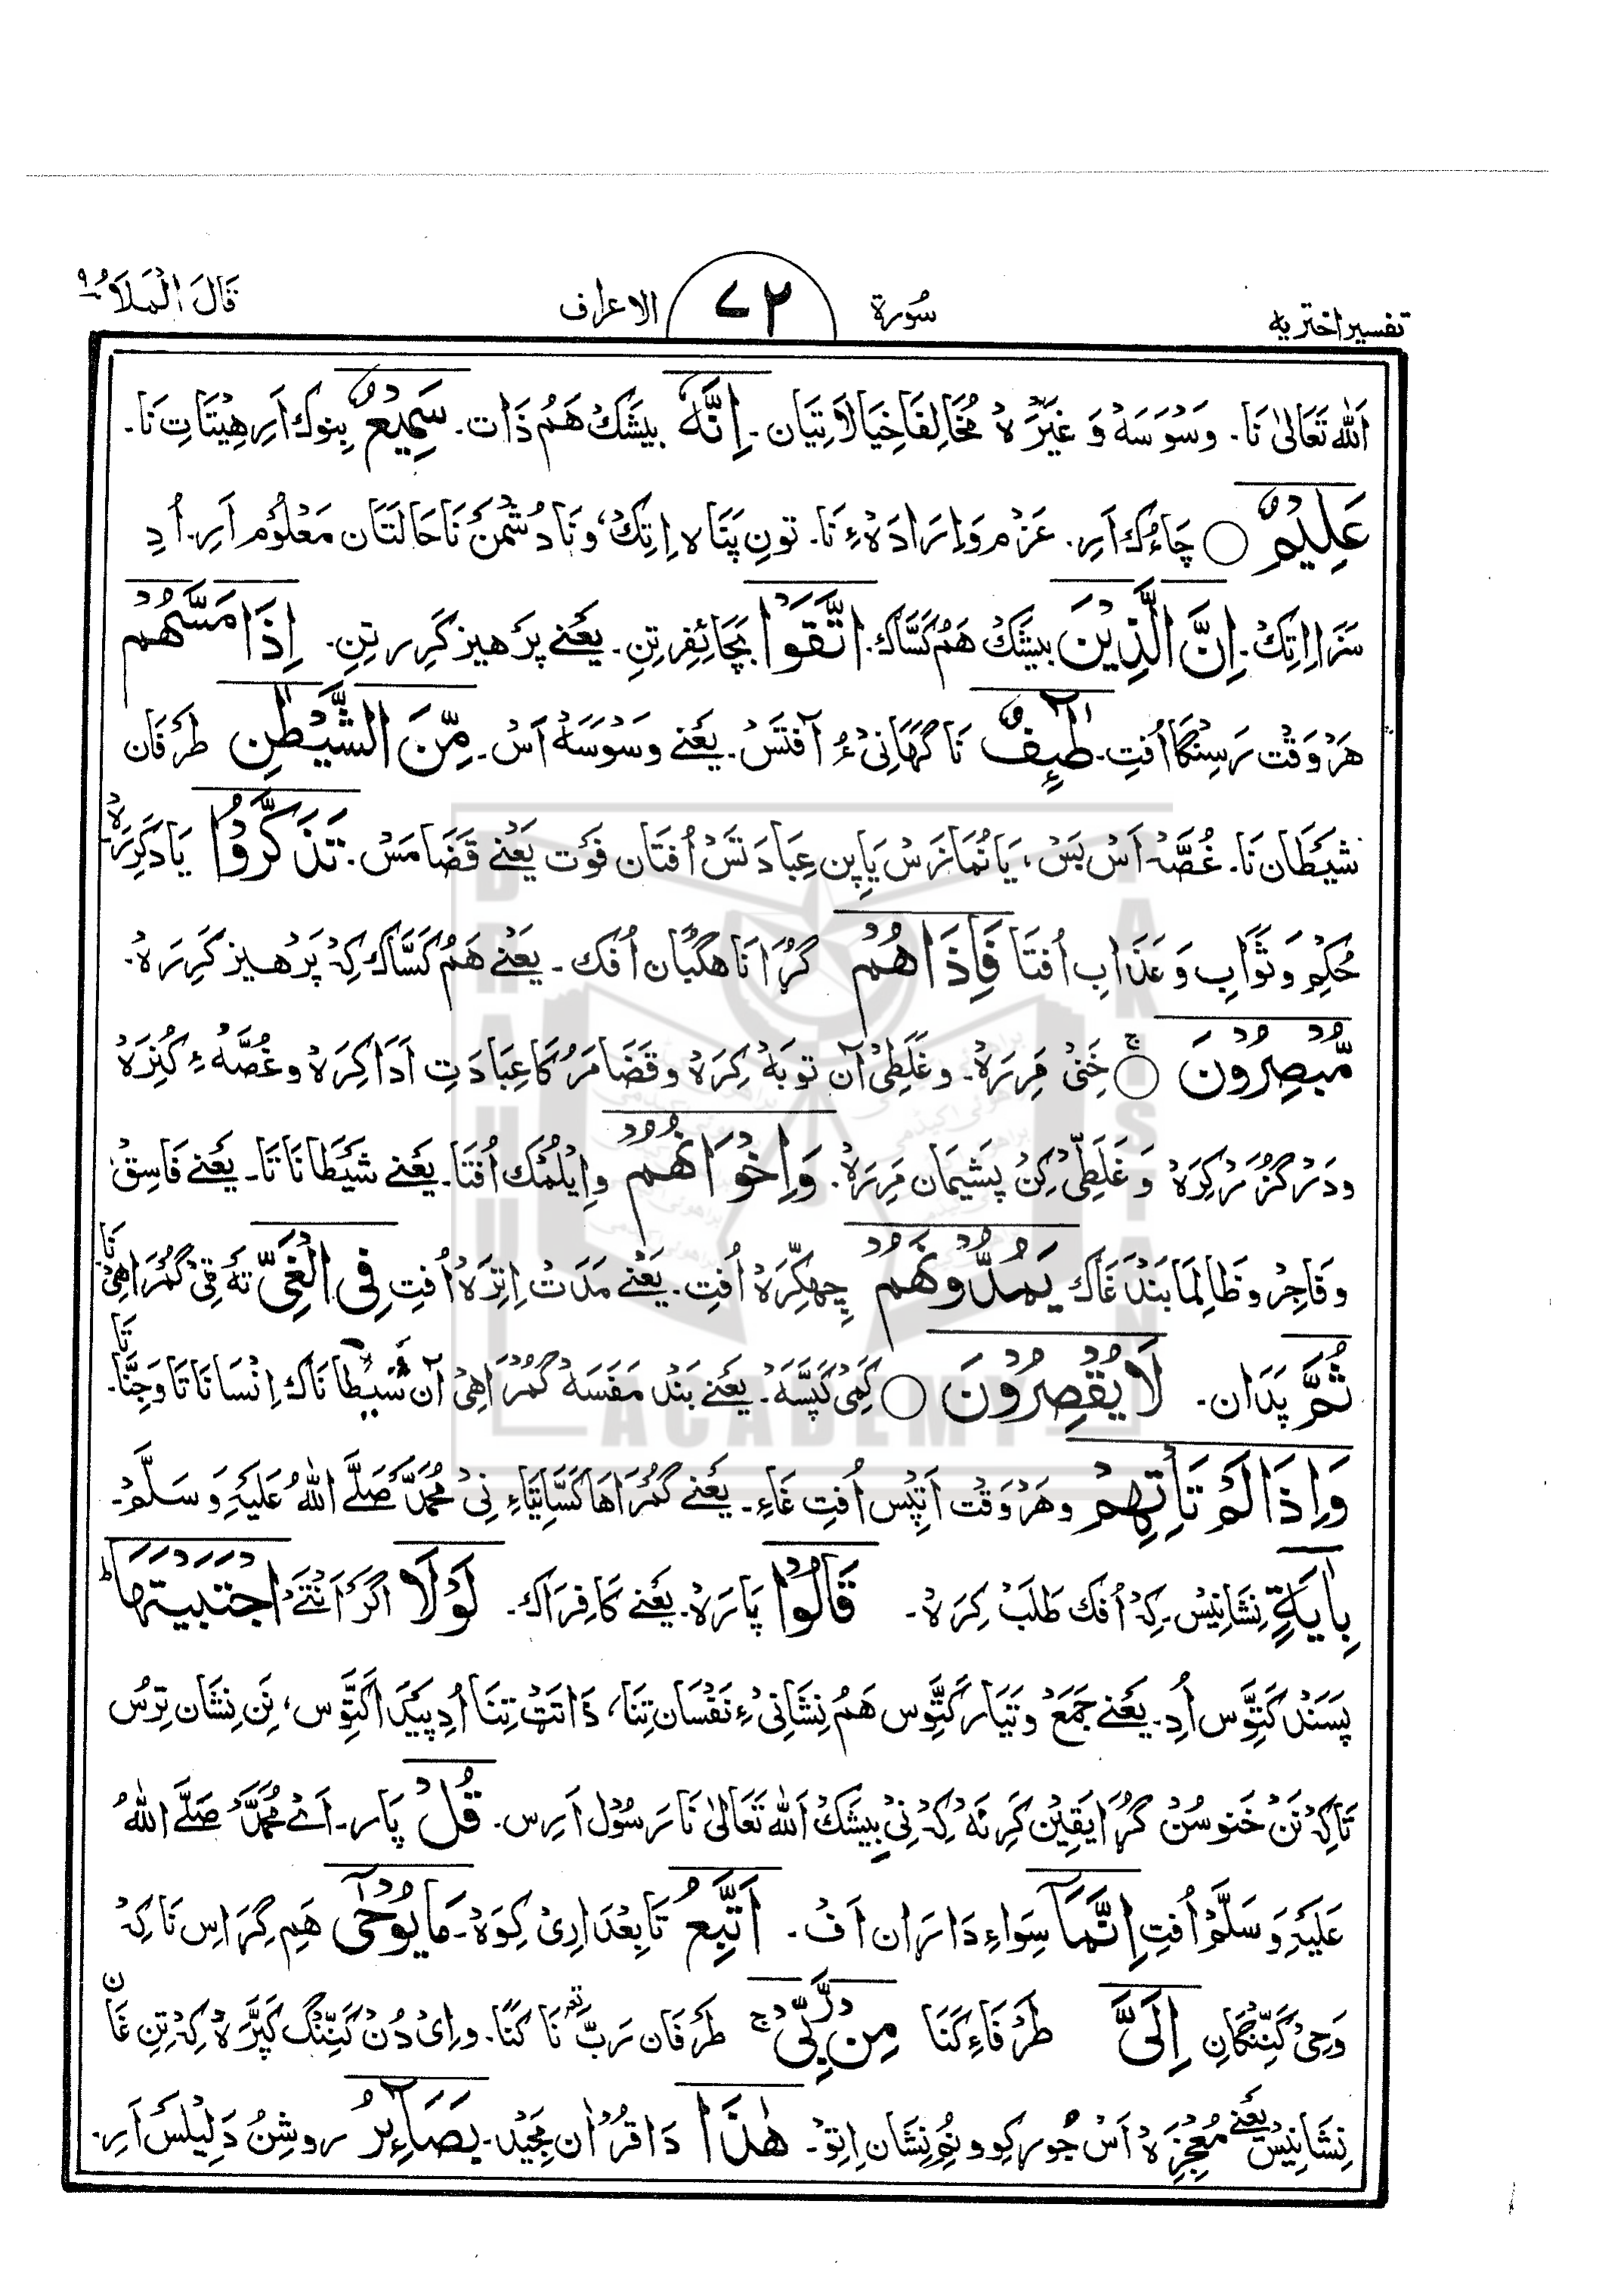 تفسیر اختریه
سُورة
۷۲
الاعراف
قَالَ الْمَلَاُ ۹
اَللہ تَعَالیٰ نَا۔ وَسْوَسَہْ وَ غَیْرَہْ مُخَالِفَا خِیَالَاتِیَان۔ اِنَّهٗ بیشَکْ هَمُ ذَات۔ سَمِیْعٌ بِنوک اَرِ هِیْتَاتِ نَا۔
عَلِیْمٌ ○ چَاءُک اَرِ۔ عَزْم وَ اِرَادَہْ ءِ نَا۔ تونِ پَنَاہ اِتِکْ، وَنَا دُشْمَنْ نَا حَالَتَان مَعْلُوْم اَرِ۔ اُدِ
سَزَا اِتِکْ۔ اِنَّ الَّذِیْنَ بیشَکْ هَمُ کَسَّاک۔ اتَّقَوْا بَچَائِفِر تِنِ۔ یَعْنے پَرْهیز کَرِر تِنِ۔ اِذَا مَسَّهُمْ
هَرْوَقْت رَسِنْگَا اُفتِ۔ طٰٓئِفٌ نَا گَهَانِیْ ءُ آفَتَسْ۔ یَعْنے وَسْوَسَہْ اَسْ۔ مِّنَ الشَّیْطٰنِ طَرْفَان
شَیْطَان نَا۔ غُصَّہْ اَسْ بَسْ، یَا نُمَازَسْ یَا پِن عِبَادَتَسْ اُفتَان فَوْت یَعْنے قَضَا مَسْ۔ تَذَكَّرُوْا یَاد کَرِرَہْ
حُکِم وَ ثَوَابِ وَ عَذَابِ اُفتَا فَاِذَا هُمْ گُڑَا نَاهَگُمَان اُفک۔ یَعْنے هَمُ کَسَّاک کِہْ پَرْهیز کَرِرَہْ۔
مُّبْصِرُوْنَ ○ خَنِیْ مَرِرَہْ۔ وَ غَلَطِیْ آن توبَہْ کِرَہْ وَ قَضَا مَرُکَا عِبَادَتِ اَدَا کِرَہْ وَ غُصَّہْ ءِ کُنِرَہْ
وَ دَرْگُزَر کِرَہْ وَ غَلَطِیْ کِنْ پَشیمَان مَرِرَہْ۔ وَاِخْوَانُهُمْ وَ اِیْلُمْک اُفتَا۔ یَعْنے شَیْطَانَاتَا۔ یَعْنے فَاسِقْ
وَ فَاجِرْ وَ ظَالِمَا بَنْدَغَاک یَمُدُّوْنَهُمْ چِهکِّرَہْ اُفتِ۔ یَعْنے مَدَتْ اِتِرَہْ اُفتِ فِی الْغَیِّ تَہْ قِیْ گُمْرَاهِیْ نَا
ثُمَّ پَدَان۔ لَا یُقْصِرُوْنَ ○ کَمِیْ کَپَّسَہْ۔ یَعْنے بَنْد مَفَسَہْ گُمْرَاهِیْ آن شَیْطَانَاک اِنْسَانَاتَا وَ جِنَّاتَا۔
وَاِذَا لَمْ تَاْتِهِمْ وَ هَرْوَقْت اَتِپِس اُفتِ غَاءِ۔ یَعْنے گُمْرَاهَا کَسَّاتِیَاءِ نِیْ مُحَمَّدْ صَلَّے اَللهُ عَلَیْہِ وَ سَلَّمْ۔
بِاٰیَةٍ نِشَانِیَس۔ کِہْ اُفک طَلَبْ کِرَہْ۔ قَالُوْا پَارَہْ۔ یَعْنے کَافِرَاک۔ لَوْلَا اَگَرْ اَنْتَےْ اجْتَبَیْتَهَا ؕ
پَسَنْد کَتَّوس اُدِ۔ یَعْنے جَمَعْ وَ تَیَار کَتَّوس هَمُ نِشَانِیْ ءِ نَفْسَان تِنَا، ذَاتَتْ تِنَا اُدِ پَیْدَا کَتَّوس، نَنِ نِشَان تِرِسُ
تَاکِہْ نَنْ خَنوسُنْ گُڑَا یَقِیْن کَرِنَہْ کِہْ نِیْ بیشَکْ اَللہ تَعَالیٰ نَا رَسُوْل اَرِس۔ قُلْ پَار۔ اَےْ مُحَمَّدْ صَلَّے اَللهُ
عَلَیْہِ وَ سَلَّمْ اُفتِ اِنَّمَاۤ سِوَاءِ دَارَان اَفْ۔ اَتَّبِعُ تَابِعْدَارِیْ کِوَہْ۔ مَا یُوْحٰۤی هَمِ گِرَاس نَا کِہْ
وَحِیْ کَنِّنْگَانِ اِلَیَّ طَرْفَاءِ کَنَا مِنْ رَّبِّیْ ۚ طَرْفَان رَبّ نَا کَنَا۔ وَ اِیْ دُنْ کَنِّنْگ کَپَّرَہْ کِہْ تِنِ غَان
نِشَانِیَس یَعْنے مُعْجِزَہْ اَسْ جُوڑ کِوو نُمِ نِشَان اِتِوْ۔ هٰذَا دَا قُرْاٰن مَجِیْد۔ بَصَآئِرُ روشِنْ دَلِیْلَسْ اَرِ۔